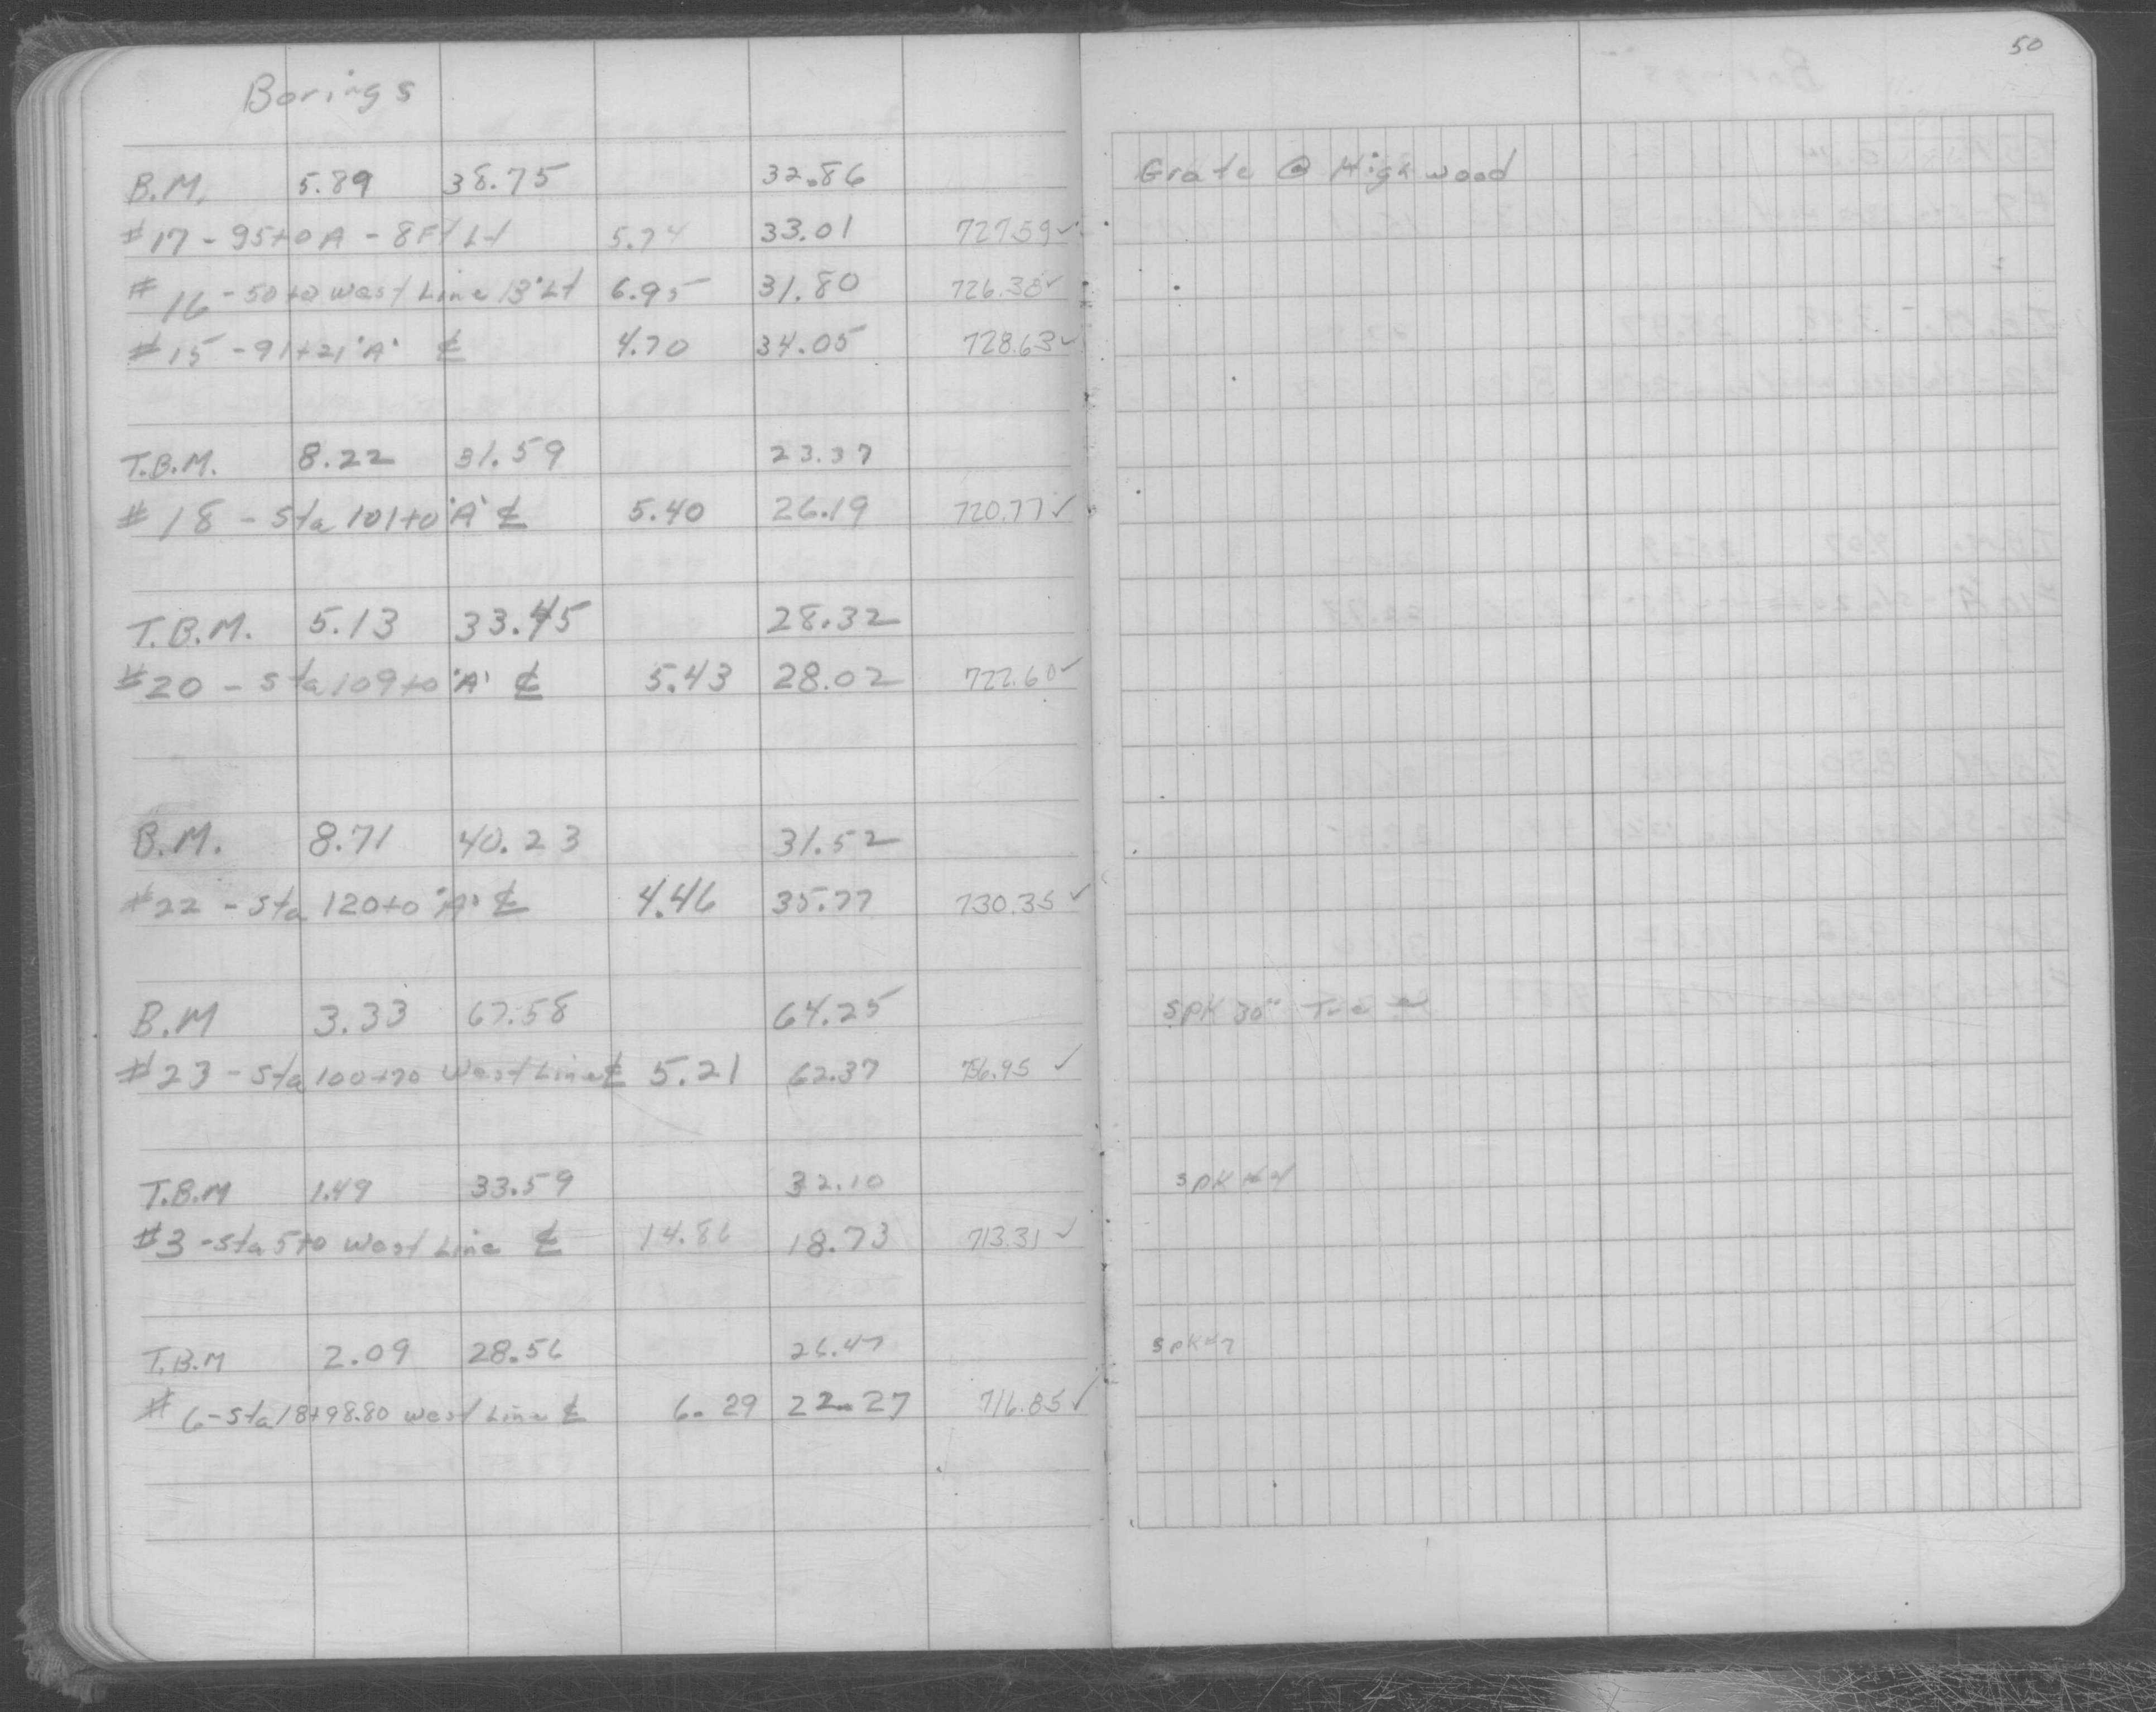 50
Borings
B.M. 5.89 38.75 32.86 Grate @ Highwood
#17 - 95+0 A - 8Ft Lt 5.74 33.01 727.59 ✓
#16 - 50+0 West Line 13' Lt 6.95 31.80 726.38 ✓
#15 - 91+21 'A' ℄ 4.70 34.05 728.63 ✓
T.B.M. 8.22 31.59 23.37
#18 - Sta 101+0 'A' ℄ 5.40 26.19 720.77 ✓
T.B.M. 5.13 33.45 28.32
#20 - Sta 109+0 'A' ℄ 5.43 28.02 722.60 ✓
B.M. 8.71 40.23 31.52
#22 - Sta 120+0 'A' ℄ 4.46 35.77 730.35 ✓
B.M 3.33 67.58 64.25 SPK 30"
#23 - Sta 100+70 West Line ℄ 5.21 62.37 756.95 ✓
T.B.M 1.49 33.59 32.10 SPK #4
#3 - Sta 5+0 West Line ℄ 14.86 18.73 713.31 ✓
T.B.M 2.09 28.56 26.47 SPK #7
#6 - Sta 18+98.80 West Line ℄ 6.29 22.27 716.85 ✓